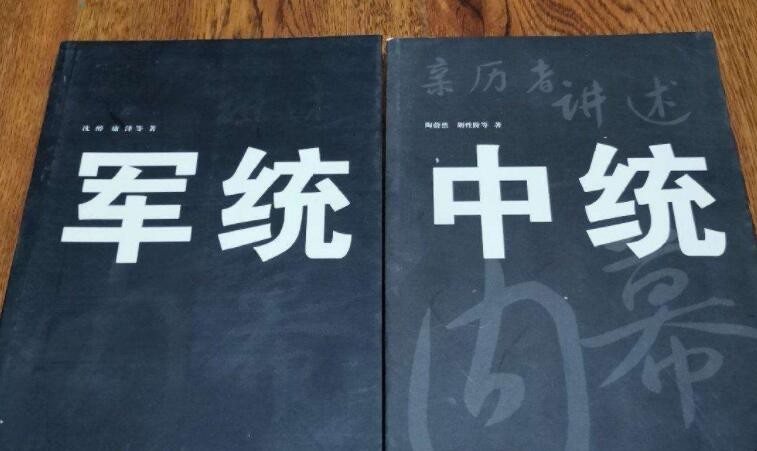 沈 醉 康 泽 等 著
军统
亲历者讲述
陶蔚然 等 著
中统
内幕